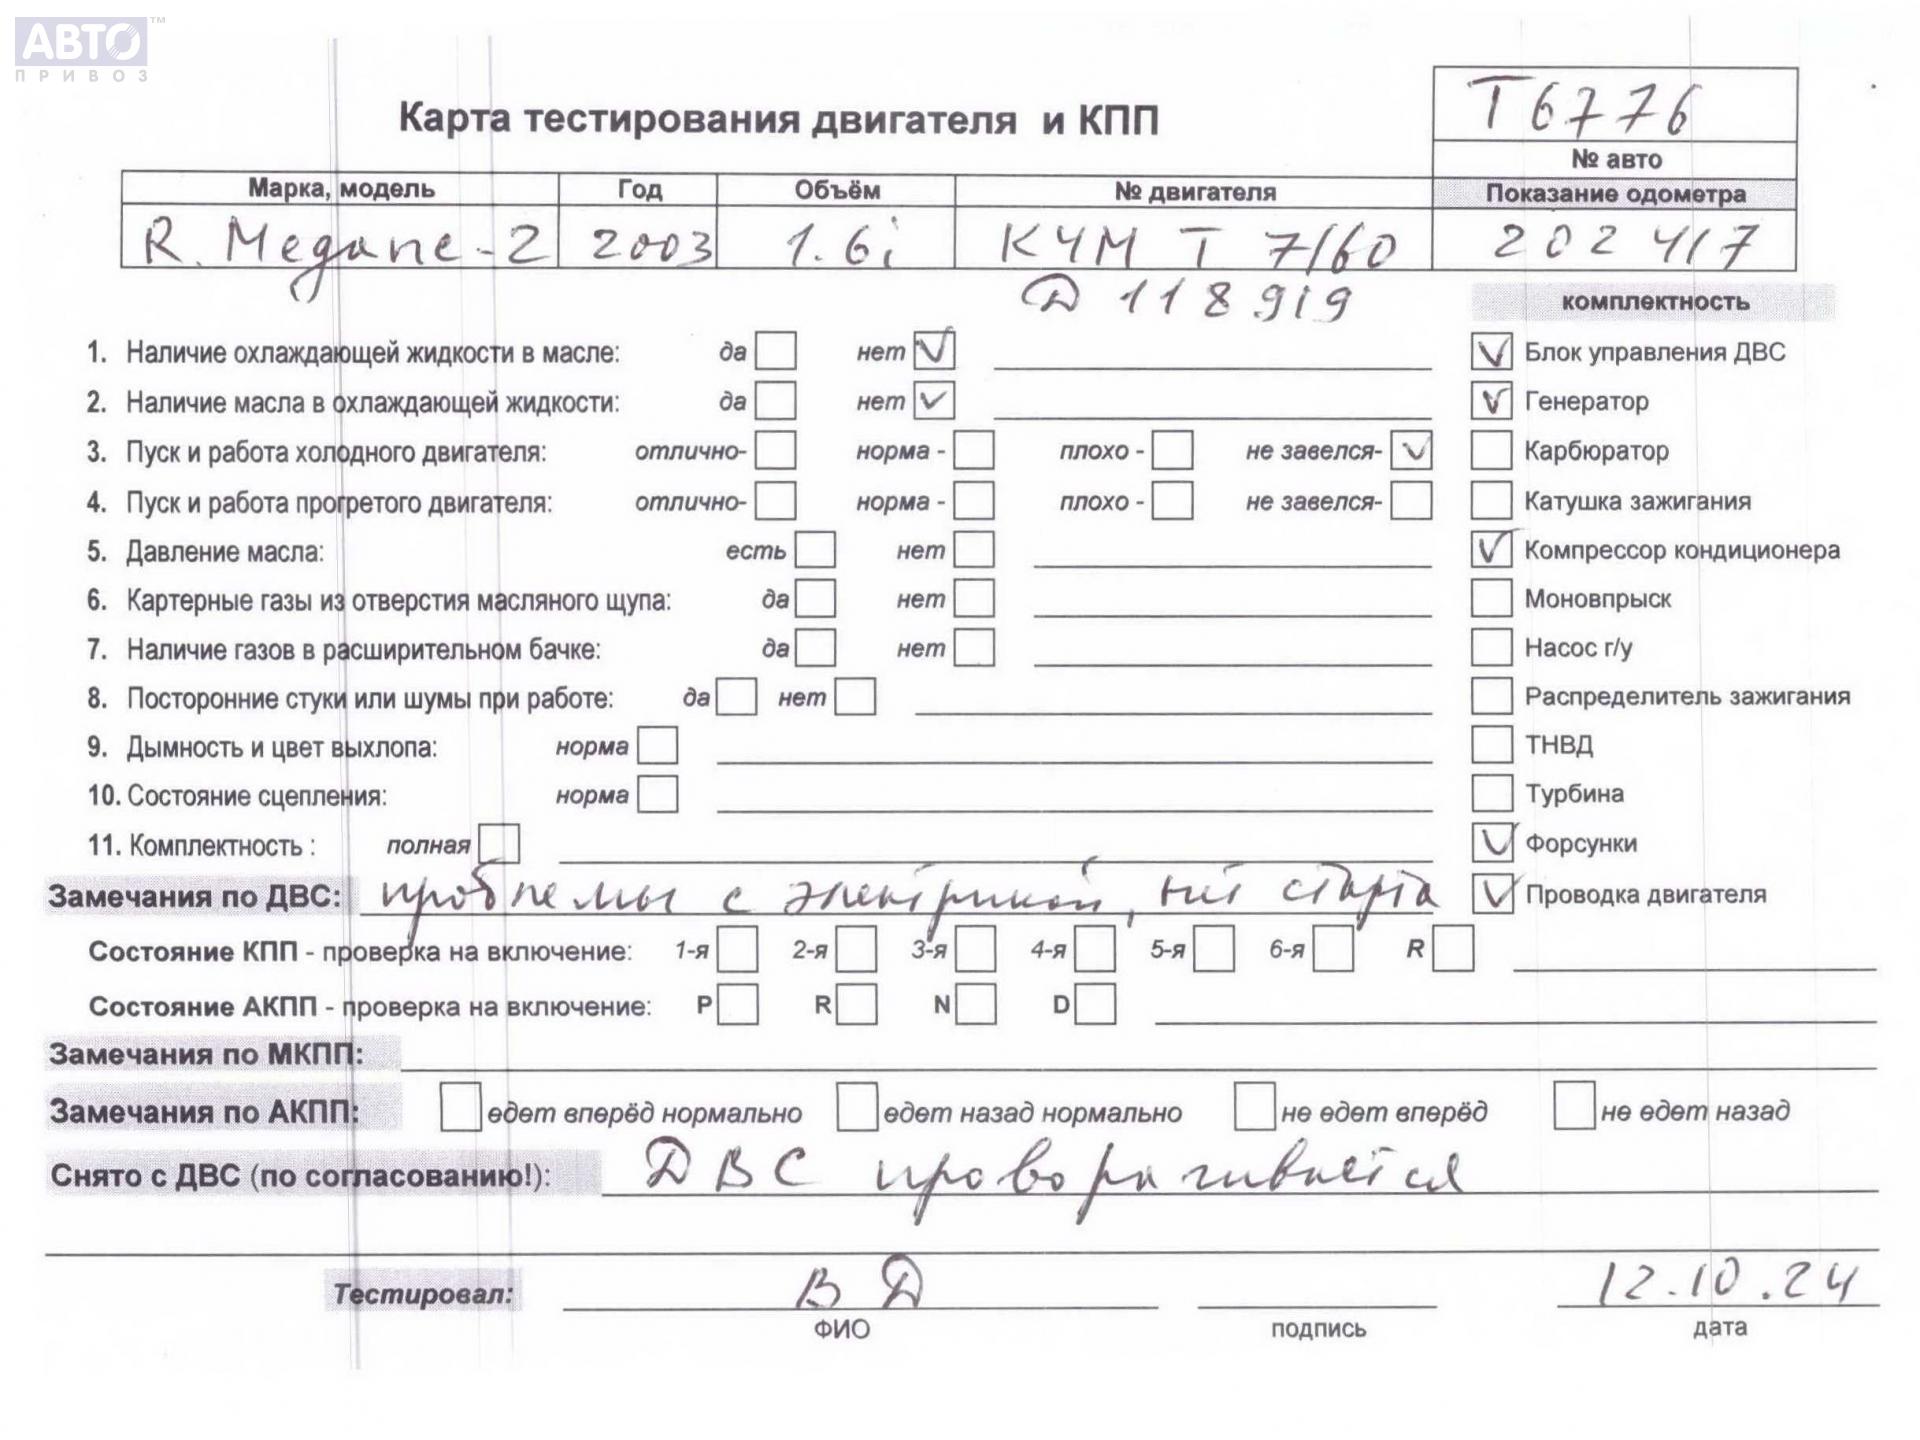 АВТО™
ПРИВОЗ
Карта тестирования двигателя и КПП
T6776
№ авто
Марка, модель Год Объём № двигателя Показание одометра
R. Megane-2 2003 1.6i K4M T 7/60 202417
D 118919
комплектность
1. Наличие охлаждающей жидкости в масле: да нет ✓ ✓ Блок управления ДВС
2. Наличие масла в охлаждающей жидкости: да нет ✓ ✓ Генератор
3. Пуск и работа холодного двигателя: отлично- норма - плохо - не завелся- ✓ Карбюратор
4. Пуск и работа прогретого двигателя: отлично- норма - плохо - не завелся- Катушка зажигания
5. Давление масла: есть нет ✓ Компрессор кондиционера
6. Картерные газы из отверстия масляного щупа: да нет Моновпрыск
7. Наличие газов в расширительном бачке: да нет Насос г/у
8. Посторонние стуки или шумы при работе: да нет Распределитель зажигания
9. Дымность и цвет выхлопа: норма ТНВД
10. Состояние сцепления: норма Турбина
11. Комплектность : полная ✓ Форсунки
Замечания по ДВС: проблемы с электрикой, нет старта ✓ Проводка двигателя
Состояние КПП - проверка на включение: 1-я 2-я 3-я 4-я 5-я 6-я R
Состояние АКПП - проверка на включение: P R N D
Замечания по МКПП:
Замечания по АКПП: едет вперёд нормально едет назад нормально не едет вперёд не едет назад
Снято с ДВС (по согласованию!): ДВС проворачивается
Тестировал: В Д 12.10.24
ФИО подпись дата